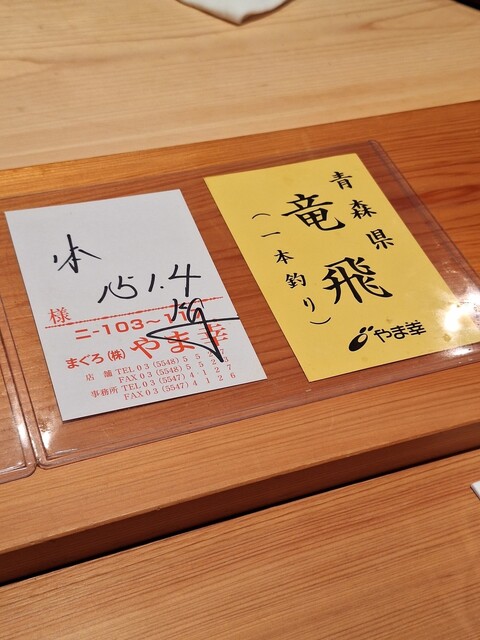 1.4
kg
様
ニ-103~11
まぐろ(株) やま幸
店舗 TEL 03 (5548) 5523
FAX 03 (5548) 5527
事務所 TEL 03 (5547) 4127
FAX 03 (5547) 4126
青森県
竜飛
(一本釣り)
やま幸